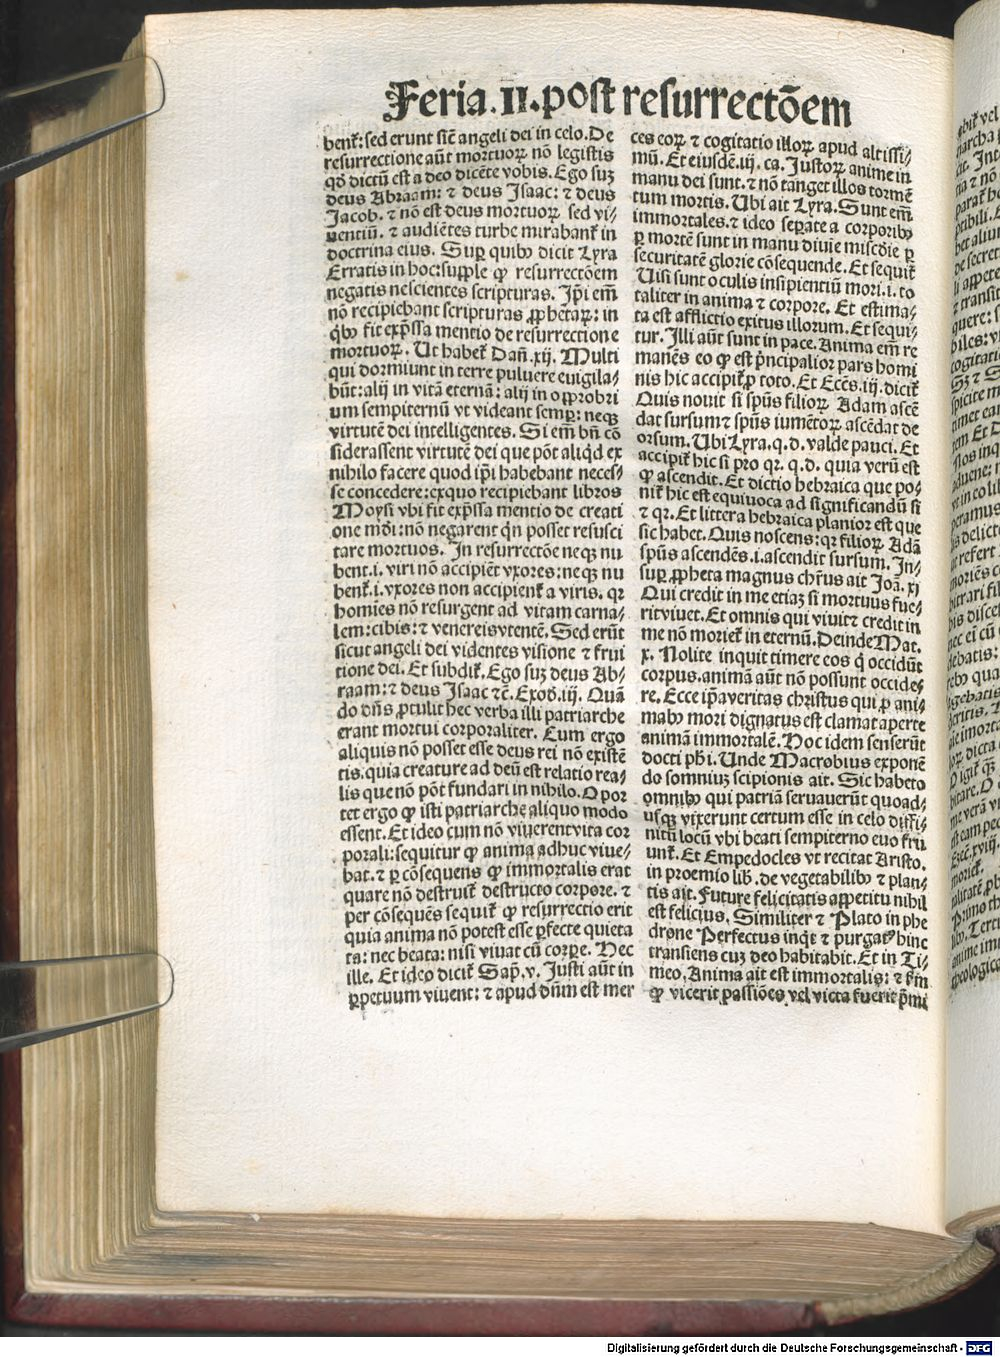 Feria. II. post resurrectōem
bent᷑: sed erunt sic̄ angeli dei in celo. De
resurrectione aūt mortuoꝝ nō legistis
qd̄ dictū est a deo dicēte vobis. Ego suꝫ
deus Abraam: ⁊ deus Isaac: ⁊ deus
Jacob. ⁊ nō est deus mortuoꝝ sed vi⸗
uentiū. ⁊ audiētes turbe mirabant᷑ in
doctrina eius. Suꝑ quibꝰ dicit Lyra
Erratis in hoc: supple ꝙ resurrectōem
negatis nescientes scripturas. Ip̄i em̄
nō recipiebant scripturas ꝓphetaꝝ: in
qͥbꝰ fit exp̄ssa mentio de resurrectione
mortuoꝝ. Ut habet᷑ Dañ. xij. Multi
qui dormiunt in terre puluere euigila⸗
būt: alij in vitā eternā: alij in opprobri
um sempiternū vt videant semꝑ: neqꝫ
virtutē dei intelligentes. Si em̄ bn̄ cō
siderassent virtutē dei que pōt aliqͥd ex
nihilo facere quod ip̄i habebant neces⸗
se concedere: exquo recipiebant libros
Moysi vbi fit exp̄ssa mentio de creati
one mūdi: nō negarent qn̄ posset resusci
tare mortuos. In resurrectōe neqꝫ nu
bent. i. viri nō accipiēt vxores: neqꝫ nu
bent᷑. i. vxores non accipient᷑ a viris. qꝛ
homīes nō resurgent ad vitam carna⸗
lem: cibis: ⁊ venereis vtentē. Sed erūt
sicut angeli dei videntes visione ⁊ frui
tione dei. Et subdit᷑. Ego suꝫ deus Ab⸗
raam: ⁊ deus Isaac ⁊c̄. Exod. iij. Quā
do dn̄s ꝓtulit hec verba illi patriarche
erant mortui corporaliter. Cum ergo
aliquis nō posset esse deus rei nō existē
tis. quia creature ad deū est relatio rea⸗
lis que nō pōt fundari in nihilo. Opor
tet ergo ꝙ isti patriarche aliquo modo
essent. Et ideo cum nō viuerent vita cor
porali: sequitur ꝙ anima adhuc viue⸗
bat. ⁊ ꝑ cōsequens ꝙ immortalis erat
quare nō destruit᷑ destructo corpore. ⁊
per cōsequēs sequit᷑ ꝙ resurrectio erit
quia anima nō potest esse ꝑfecte quieta
ta: nec beata: nisi viuat cū corꝑe. Hec
ille. Et ideo dicit᷑ Sap̄. v. Justi aūt in
ꝑpetuum viuent: ⁊ apud dn̄m est mer
ces eoꝝ ⁊ cogitatio illoꝝ apud altissi⸗
mū. Et eiusdē. iij. ca. Justoꝝ anime in
manu dei sunt. ⁊ nō tanget illos tormē
tum mortis. Ubi ait Lyra. Sunt em̄
immortales. ⁊ ideo seꝑate a corporibꝰ
ꝑ mortē sunt in manu diuie miscd̄ie ꝑ
securitatē glorie cōsequende. Et sequit᷑
Uisi sunt oculis insipientiū mori. i. to
taliter in anima ⁊ corpore. Et estima⸗
ta est afflictio exitus illorum. Et sequi⸗
tur. Illi aūt sunt in pace. Anima em̄ re
manēs eo ꝙ est pͥncipalior pars homi
nis hic accipit᷑ ꝓ toto. Et Ecc̄s. iij. dicit᷑
Quis nouit si sp̄us filioꝝ Adam ascē
dat sursum ⁊ sp̄us iumētoꝝ ascēdat de
orsum. Ubi Lyra. q. d. valde pauci. Et
accipit᷑ hic si pro qꝛ. q. d. quia verū est
ꝙ ascendit. Et dictio hebraica que po⸗
nit᷑ hic est equiuoca ad significandū si
⁊ qꝛ. Et littera hebraica planior est que
sic habet. Quis noscens: qꝛ filioꝝ Adā
sp̄us ascendēs. i. ascendit sursum. In⸗
suꝑ ꝓpheta magnus chr̄us ait Joā. xj
Qui credit in me etiaꝫ si mortuus fue⸗
rit viuet. Et omnis qui viuit ⁊ credit in
me nō moriet᷑ in eternū. Deinde Mat.
x. Nolite inquit timere eos qͥ occidūt
corpus. animā aūt nō possunt occide⸗
re. Ecce ip̄a veritas christus qui ꝓ ani⸗
mabꝰ mori dignatus est clamat aperte
animā immortalē. Hoc idem senserūt
docti ph̄i. Unde Macrobius exponē
do somniuꝫ scipionis ait. Sic habeto
omnibꝰ qui patriā seruauerūt quoad⸗
usqꝫ vixerunt certum esse in celo diffi⸗
nitū locū vbi beati sempiterno euo fru
unt᷑. Et Empedocles vt recitat Aristo.
in proemio lib. de vegetabilibꝰ ⁊ plan⸗
tis ait. Future felicitatis appetitu nihil
est felicius. Similiter ⁊ Plato in phe
drone Perfectus inqͥt ⁊ purgatꝰ hinc
transiens cuꝫ deo habitabit. Et in Ti⸗
meo. Anima ait est immortalis: ⁊ fm̄
ꝙ vicerit passiōes vel victa fuerit pͥmi